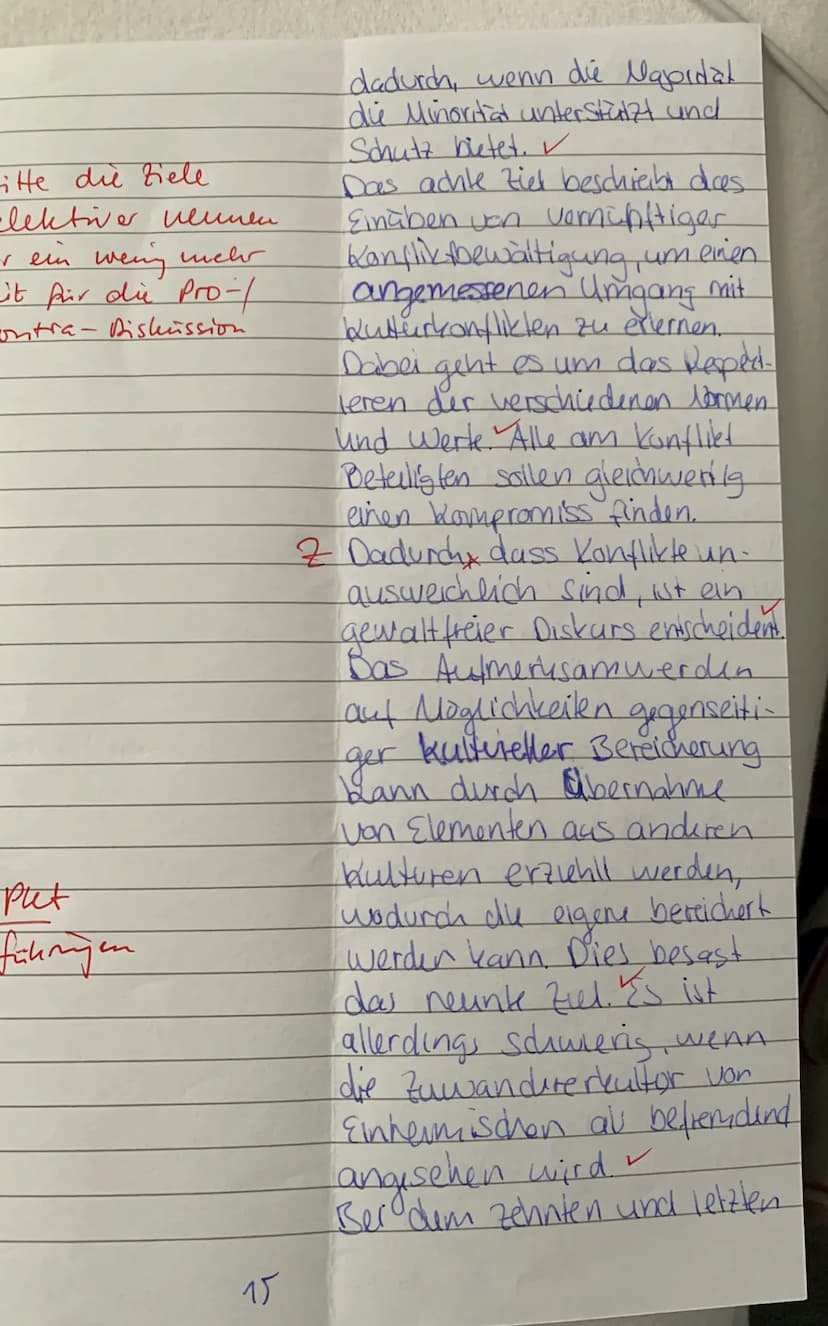 dadurch, wenn die Majorität
die Minorität unterstützt und
Schutz bietet. ✓
Das achte Ziel beschreibt das
Einüben von vernünftiger
Konfliktbewältigung, um einen
angemessenen Umgang mit
Kulturkonflikten zu erlernen.
Dabei geht es um das Respek-
tieren der verschiedenen Normen
und Werte. ✓ Alle am Konflikt
Beteiligten sollen gleichwertig
einen Kompromiss finden.
Z Dadurch, dass Konflikte un-
ausweichlich sind, ist ein
gewaltfreier Diskurs entscheident. ✓
Das Aufmerksamwerden
auf Möglichkeiten gegenseiti-
ger kultureller Bereicherung
kann durch Übernahme
von Elementen aus anderen
Kulturen erziehlt werden,
wodurch die eigene bereichert
werden kann. Dies besagt
das neunte Ziel. ✓ Es ist
allerdings schwierig, wenn
die Zuwandererkultur von
Einheimischen als befremdend
angesehen wird. ✓
Bei dem zehnten und letzten
itte die Ziele
elektiver nennen
r ein wenig mehr
it für die Pro-/
ontra-Diskussion
führungen
15